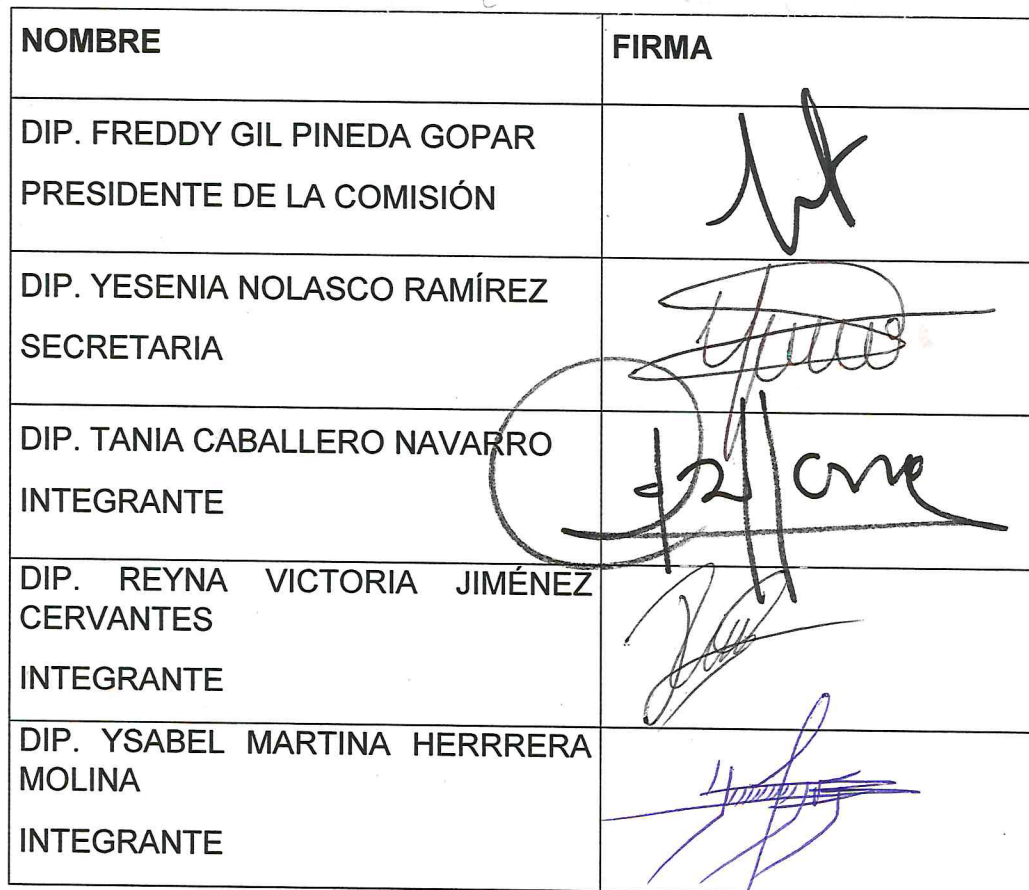 NOMBRE
FIRMA
DIP. FREDDY GIL PINEDA GOPAR
PRESIDENTE DE LA COMISIÓN
DIP. YESENIA NOLASCO RAMÍREZ
SECRETARIA
DIP. TANIA CABALLERO NAVARRO
INTEGRANTE
DIP. REYNA VICTORIA JIMÉNEZ
CERVANTES
INTEGRANTE
DIP. YSABEL MARTINA HERRRERA
MOLINA
INTEGRANTE